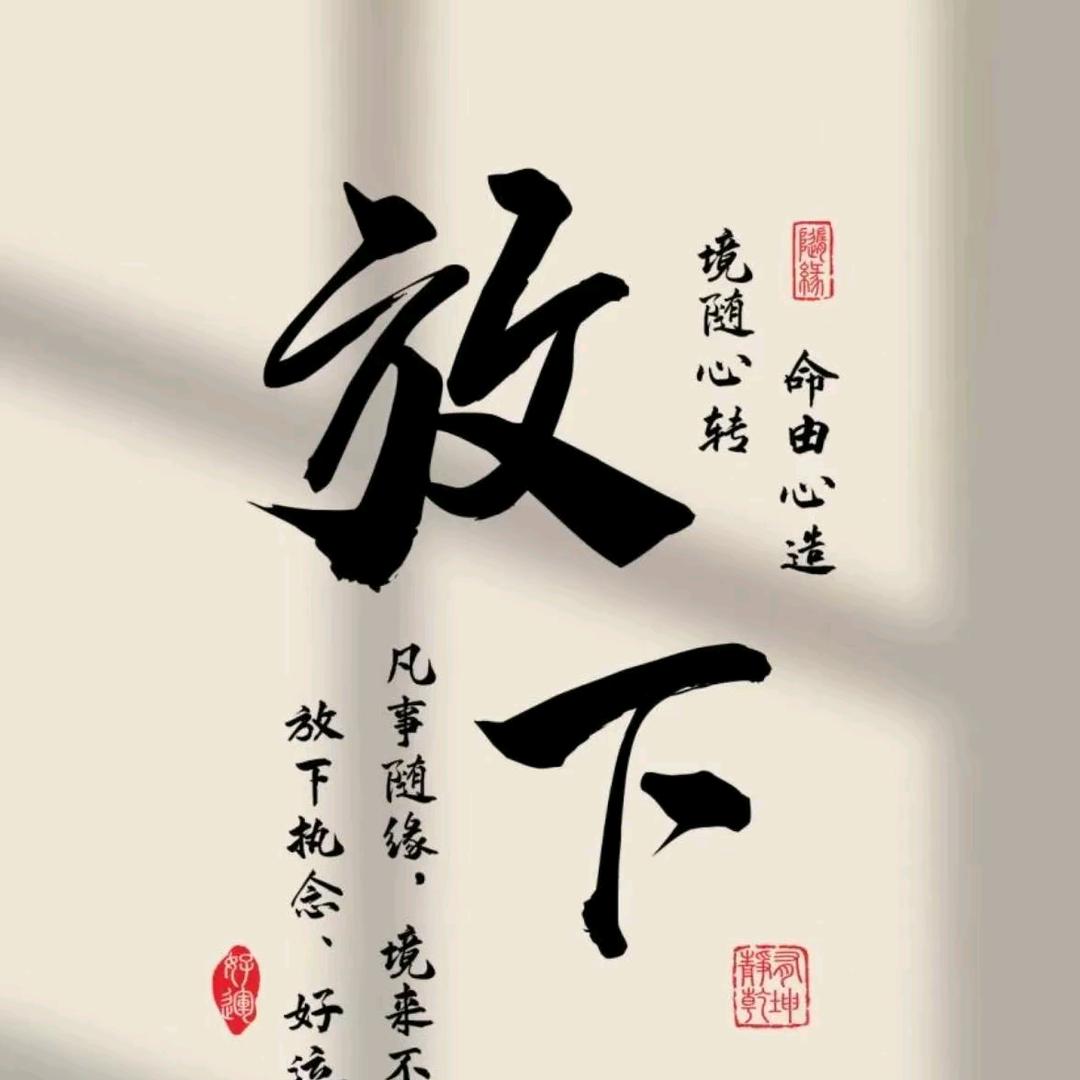 放下
随缘
命由心造
境随心转
凡事随缘，境来不
放下执念、好运
好運
静 乾坤